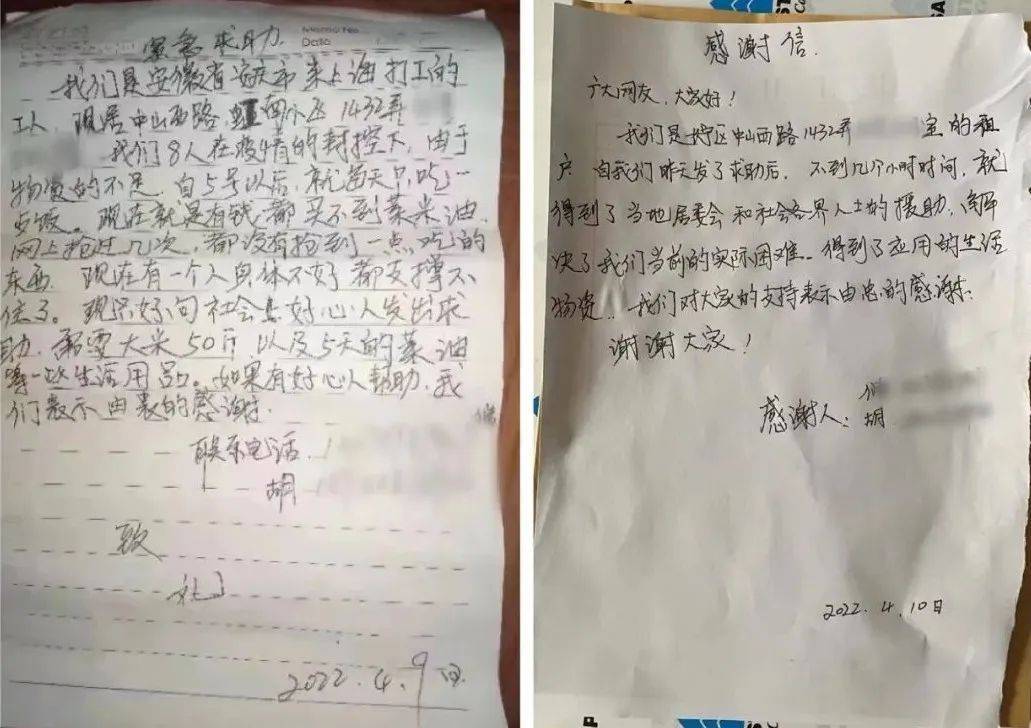 Memo No.
Date
紧急求助
我们是安徽省安庆市来上海打工的
工人, 现居中山西路 1432弄
我们8人在疫情的封控下, 由于
物资的不足, 自5号以后, 就每天只吃一
点饭。现在就是有钱都买不到菜米油.
网上抢过几次, 都没有抢到一点吃的
东西 现在有一个人身体不好都支撑不
住了。现只好向社会上好心人发出求
助. 需要大米50斤, 以及5天的菜油
等一些生活用品。如果有好心人帮助, 我
们表示由衷的感谢.
联系电话.
胡
致
礼
2022.4.9日
感谢信.
广大网友, 大家好!
我们是 区中山西路1432弄 室的租
户 自我们昨天发了求助后, 不到几个小时时间, 就
得到了当地居委会和社会各界人士的援助, 解
决了我们当前的实际困难.. 得到了应用的生活
物资. 我们对大家的支持表示由忠的感谢.
谢谢大家!
感谢人:
胡
2022.4.10日